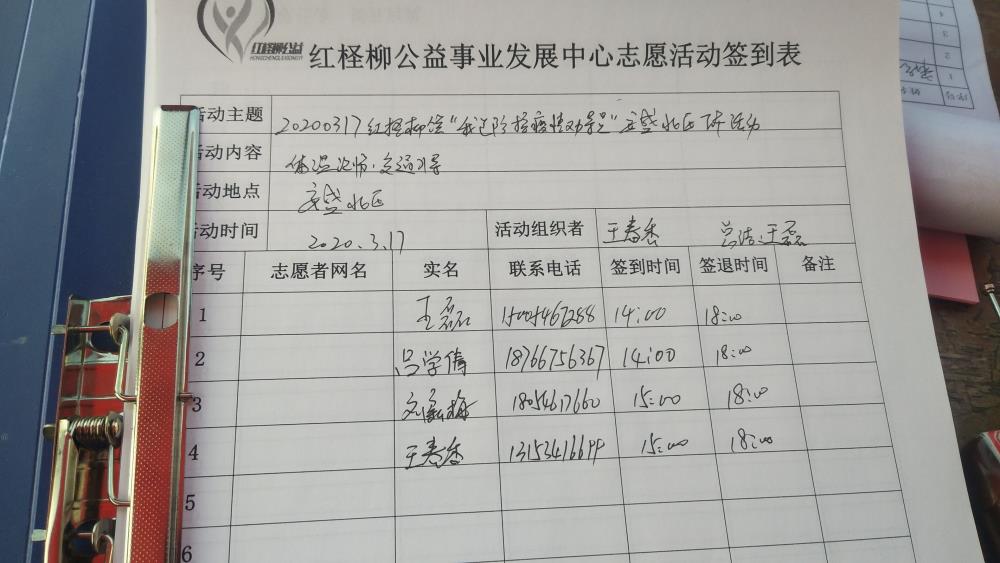 红柽柳公益
HONGCHENGLIUGONGYI
红柽柳公益事业发展中心志愿活动签到表
活动主题 20200317红柽柳 "我送防控疫情 安盛北区 活动
活动内容 体温 交通
活动地点 安盛北区
活动时间 2020.3.17 活动组织者 王春香 总结:王磊
序号 志愿者网名 实名 联系电话 签到时间 签退时间 备注
1 王磊 14:00 18:00
2 吕学倩 18766756367 14:00 18:00
3 18054617660 15:00 18:00
4 王春香 15:00 18:00
5
6